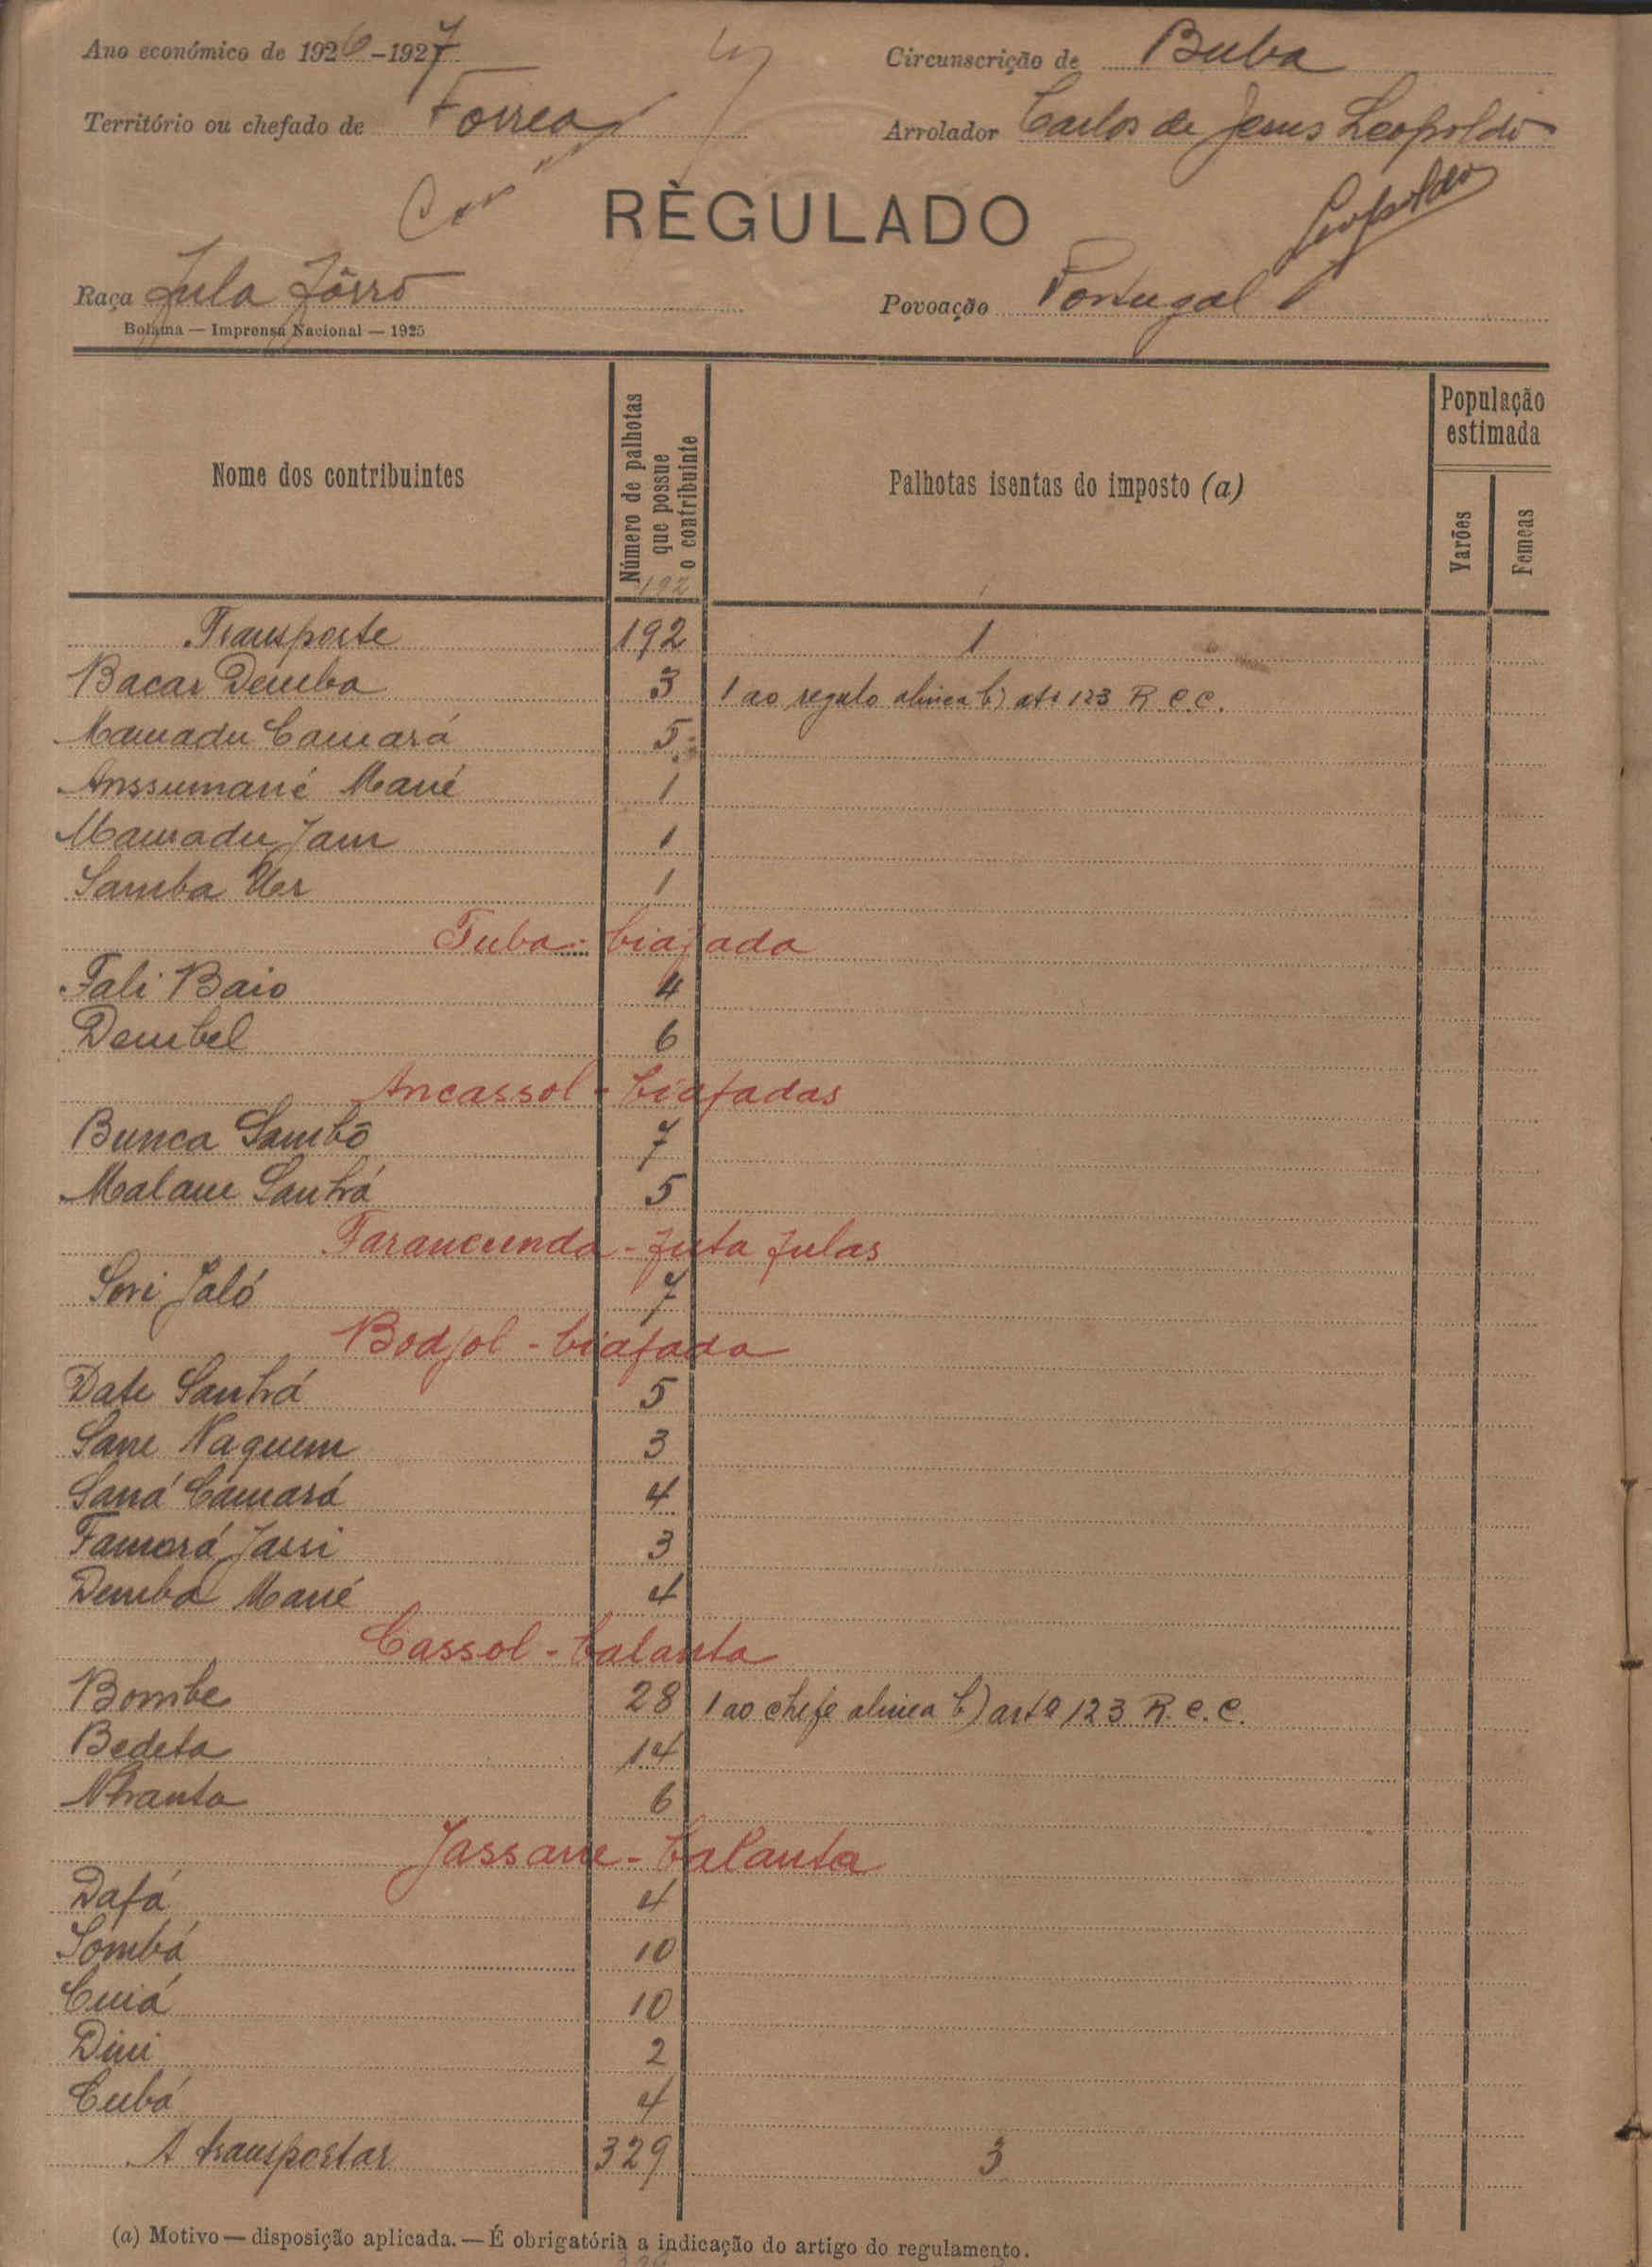 Ano económico de 1926-1927 Circunscrição de Buba
Território ou chefado de Forrea Arrolador Carlos de Jesus Leopoldo
Leopoldo
RÈGULADO
Raça Fula Fôrro Povoação Portugal
Bolama — Imprensa Nacional — 1925
Nome dos contribuintes
Número de palhotas que possue o contribuinte
Palhotas isentas do imposto (a)
População estimada
Varões
Femeas
192
Transporte 192 1
Bacar Demba 3 1 ao regulo alinea b) artº 123 R. C. C.
Mamadu Camará 5
Anssumané Mané 1
Mamadu Jam 1
Samba Uer 1
Tuba - biafada
Fali Baio 4
Dembel 6
Ancassol - biafadas
Bunca Sambō 7
Malam Sanhá 5
Farancunda - futa fulas
Sori Jaló 7
Bodjol - biafada
Date Sanhá 5
Sane Naquem 3
Saná Cámará 4
Famará Jassi 3
Demba Mané 4
Cassol - balanta
Bombe 28 1 ao chefe alinea b) artº 123 R. C. C.
Bedeta 14
Nhanta 6
Jassane - balanta
Dafá 4
Sombá 10
Cuiá 10
Dini 2
Cubá 4
A transportar 329 3
(a) Motivo — disposição aplicada. — É obrigatória a indicação do artigo do regulamento.
329